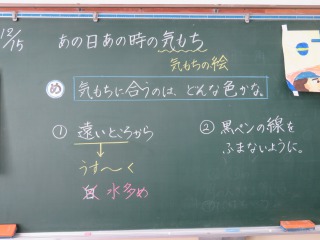 12/15
あの日あの時の気もち
気もちの絵
め 気もちに合うのは、どんな色かな。
① 遠いところから
うす〜く
水多め
② 黒ペンの線を
ふまないように。